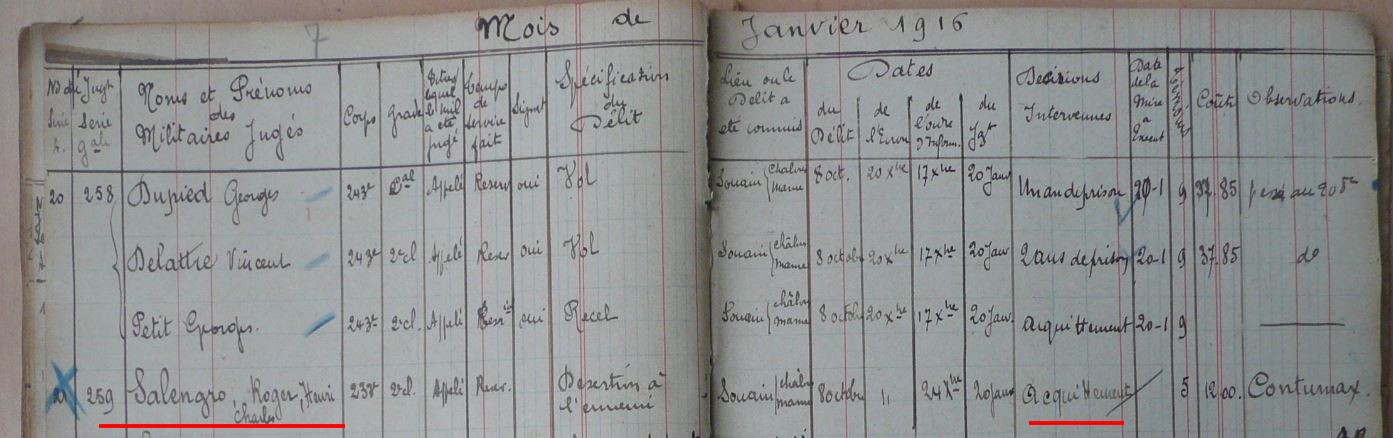 7 Mois de Janvier 1916
Noms et Prénoms des Militaires Jugés
Corps
Grade
Temps de service fait
Spécification du Délit
Lieu où le Délit a été commis
Dates
du Délit
de
du Jgt
Décisions Intervenues
Date de la Mise à Exécut
Coûts
Observations.
20 258 Dupied Georges 243e Appelé Reserv oui Vol Souain châlons marne 8 oct. 20 Xbre 17 Xbre 20 Janv Un an de prison 20-1 9 37.85
Delattre Vincent 243e 2e cl Appelé Reser oui Vol Souain châlons marne 8 octobre 20 Xbre 17 Xbre 20 Janv 2 ans de prison 20-1 9 37.85 do
Petit Georges. 243e 2e cl. Appelé oui Recel Souain châlons marne 8 octobre 20 Xbre 17 Xbre 20 Janv. acquittement 20-1 9
259 Salengro, Roger, Henri Charles 233e 2e cl. Appelé Reser. Desertion à l'ennemi Souain châlons marne 8 octobre 24 Xbre 20 Janv Acquittement 5 12.00. Contumax.